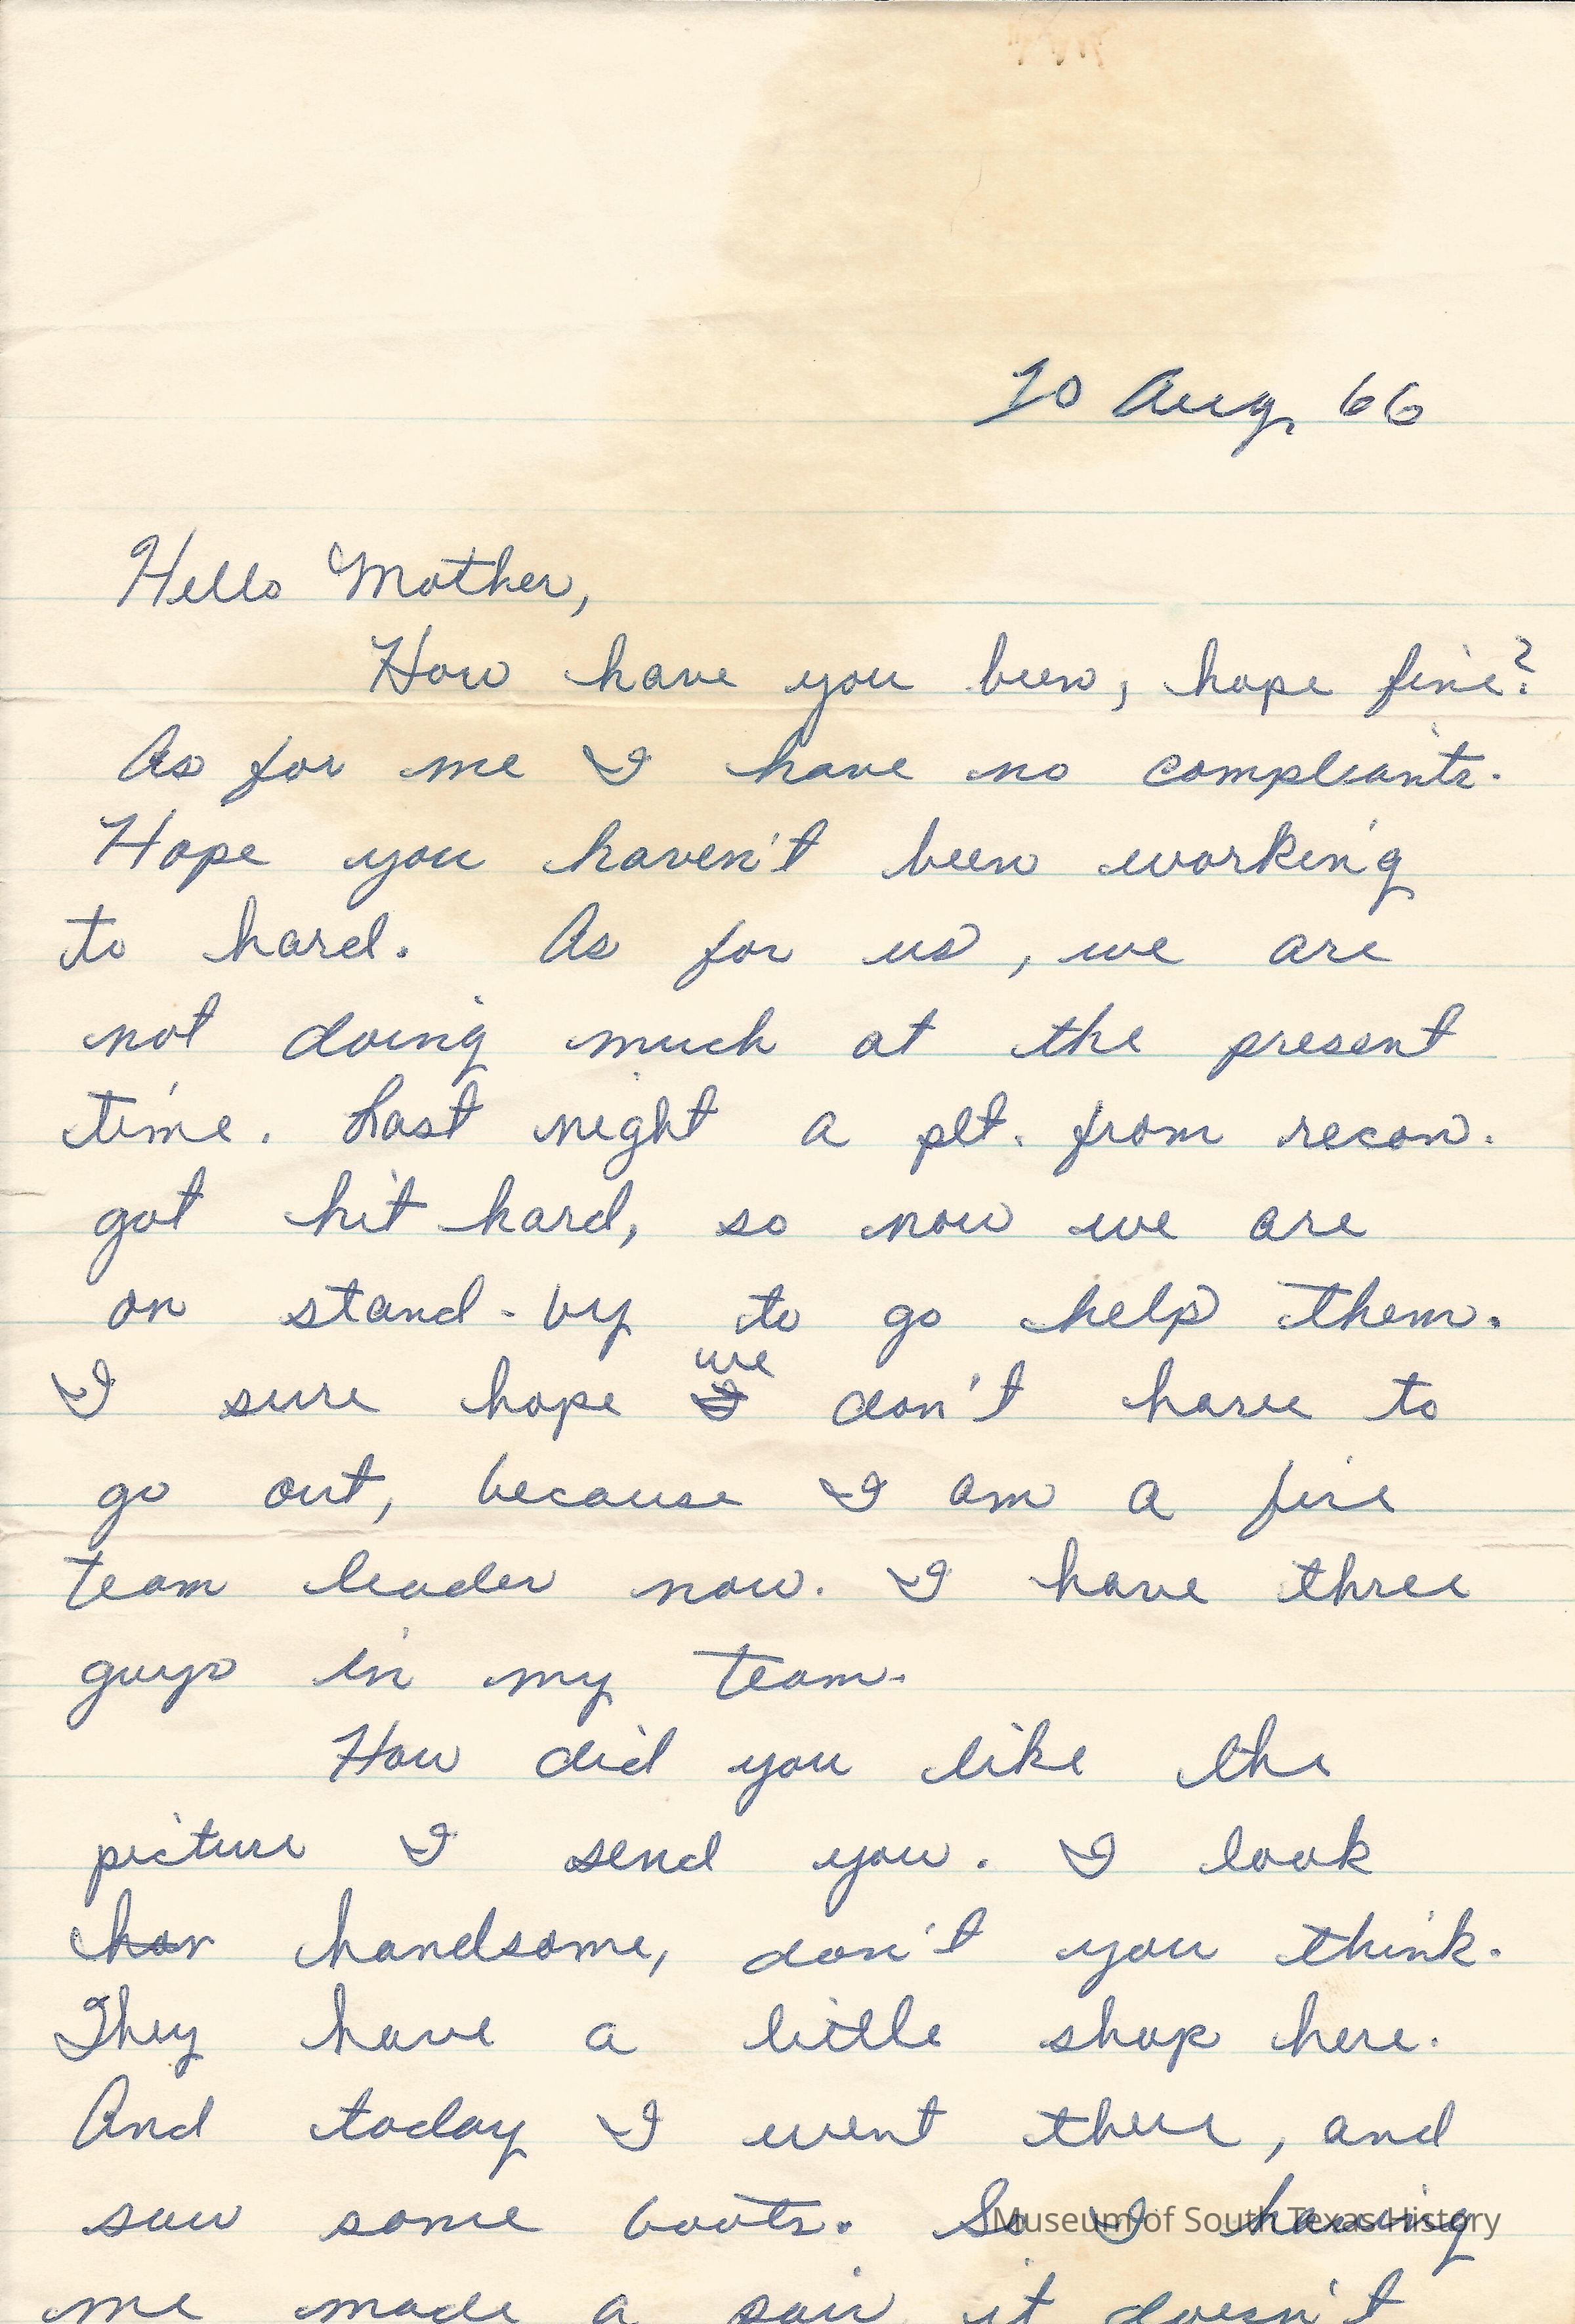 10 Aug. 66
Hello Mother,
How have you been, hope fine?
As for me I have no compliants.
Hope you haven't been working
to hard. As for us, we are
not doing much at the present
time. Last night a plt. from recon.
got hit hard, so now we are
on stand-by to go help them.
we
I sure hope I don't have to
go out, because I am a fire
team leader now. I have three
guys in my team.
How did you like the
picture I send you. I look
han handsome, don't you think.
They have a little shop here.
And today I went there, and
saw some boots. So I having
Museum of South Texas History
me made a pair it doesn't